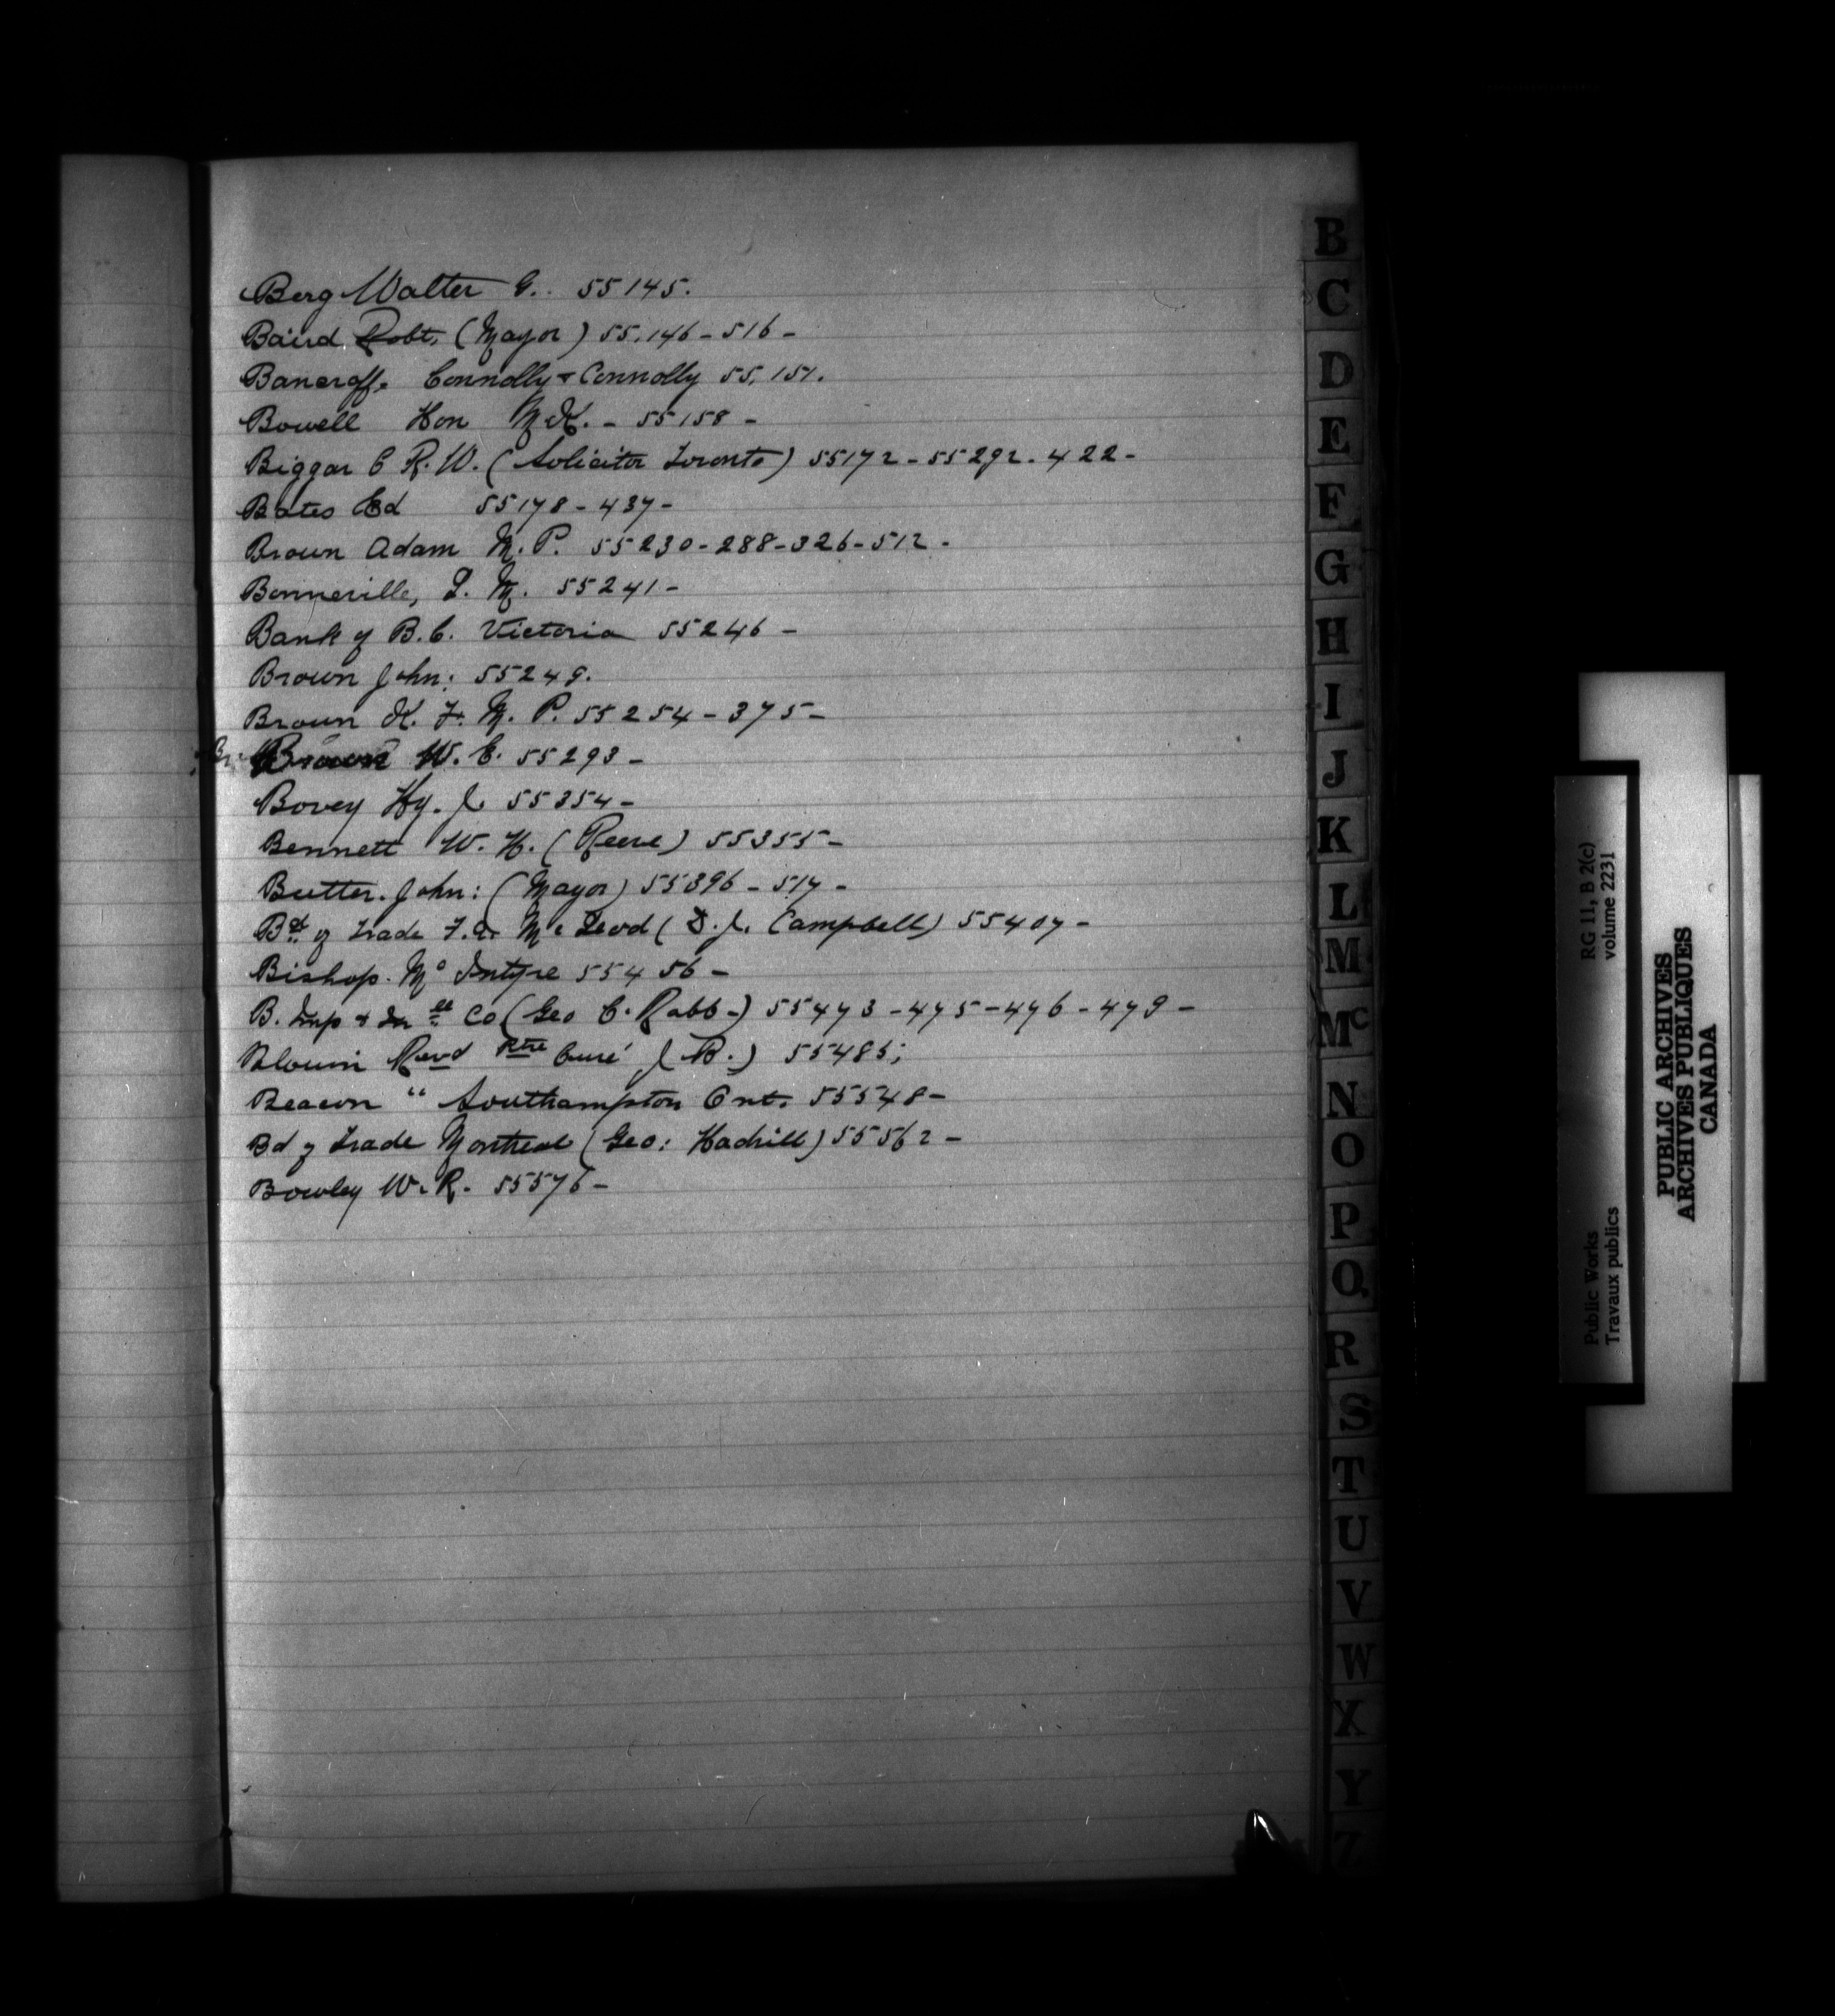 Berg Walter G. 55145.
Baird Robt. (Mayor) 55.146-516-
Bancroft Connolly & Connolly 55.151.
Bowell Hon McK. - 55158 -
Biggar C R. W. (Solicitor Toronto) 55172 - 55292 - 422 -
Bates Ed 55178 - 437 -
Brown Adam M. P. 55230 - 288 - 326 - 512 -
Bonneville, P. M. 55241 -
Bank of B.C. Victoria 55246 -
Brown John: 55249.
Brown H. F. M. P. 55254 - 375 -
Brown W. E. 55293 -
Bovey Hy. J. 55354 -
Bennett W. H. (Reeve) 55355 -
Butter. John: (Mayor) 55396 - 517 -
Bd of Trade Mc Leod (D. J. Campbell) 55407 -
Bishop. Mc Intyre 55456 -
B. Imp & Co (Geo C. Robb -) 55473 - 475 - 476 - 479 -
Blouin Revd Ptre Curé J. B.) 55485;
Beacon " Southampton Ont. 55548 -
Bd of Trade Montreal (Geo: Hadrill) 55562 -
Bowley W. R. 55576 -
B
C
D
E
F
G
H
I
J
K
L
M
Mc
N
O
P
Q
R
S
T
U
V
W
X
Y
Z
RG 11, B 2(c)
volume 2231
Public Works
Travaux publics
PUBLIC ARCHIVES
ARCHIVES PUBLIQUES
CANADA